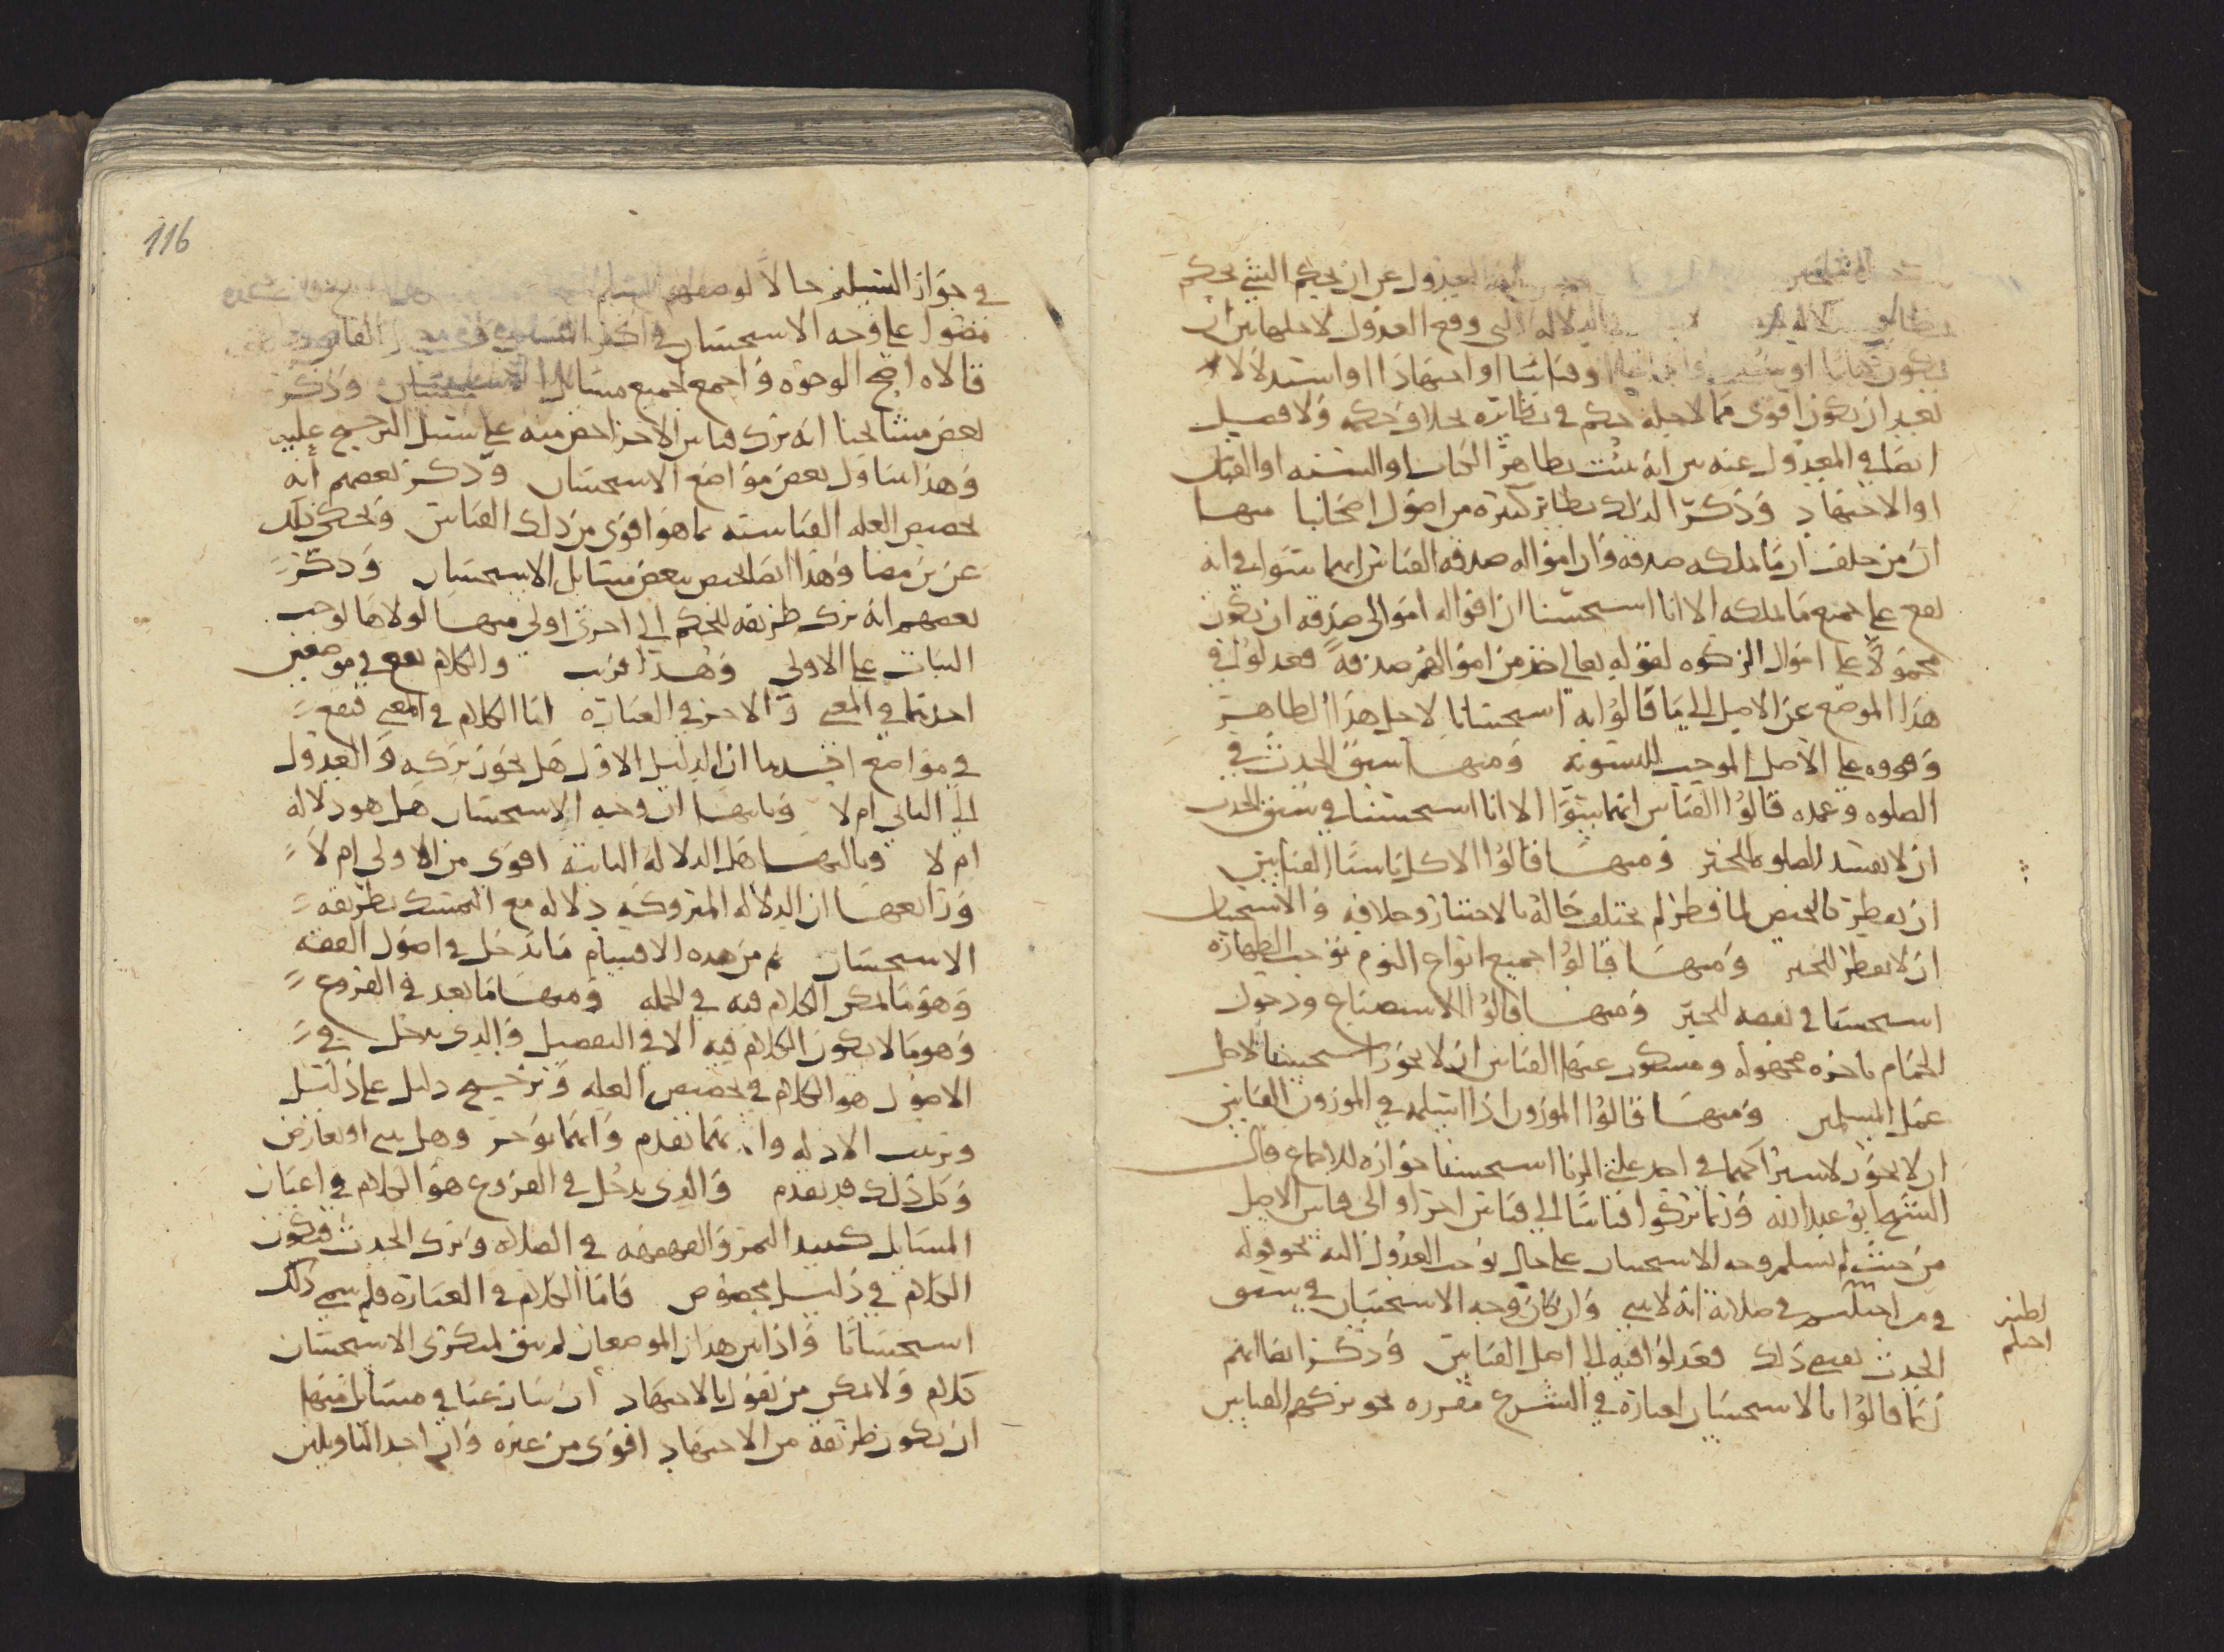 العدول عن ان يحكم الشي بحكم
الدلاله التي وقع العدول لاجلها بين ان
او قياسا او اجتهادا او استدلالا
بعد ان يكون اقوى مما لاجله حكم في نظائره بخلاف حكمه ولا فصل
ايضا في المعدول عنه بين انه يثبت بظاهر الكتاب او السنه او القياس
او الاجتهاد وذكر لذلك نظاير كثيره من اصول اصحابنا منها
ان من حلف ان ما املكه صدقه وان امواله صدقه القياس انهما سوا في انه
يقع على جميع ما يملكه الا انا استحسنا ان اقواله اموالى صدقه ان يكون
محمولا على اموال الزكوه لقوله تعالى خذ من اموالهم صدقة فعدلوا في
هذا الموضع عن الاصل الى ما قالوا به استحسانا لاجل هذا الظاهر
على الاصل الموجب للتسويه ومنها سبق الحدث في
الصلوه وعمده قالوا القياس انهما سوا الا انا استحسنا في سبق الحدث
ان لا يفسد الصلوه للخبر ومنها قالوا الاكل ناسيا القياس
ان يفطر كالحيض لما فطر لم يختلف حاله بالاختيار وخلافه والاستحسان
ان لا يفطر للخبر ومنها قالوا جميع انواع النوم يوجب الطهاره
استحسنا في بعضه للخبر ومنها قالوا الاستصناع ودخول
الحمام باجره مجهوله ومسكوت عنها القياس ان لا يجوز استحسنا لاجل
عمل المسلمين ومنها قالوا الموزون اذا اسلم في الموزون القياس
ان لا يجوز لاشتراكهما في احد علتي الربا استحسنا جوازه للاجماع قال
الشيخ ابو عبد الله وربما تركوا قياسا الى قياس اخر او الى قياس الاصل
من حيث لم يسلم وجه الاستحسان على حال يوجب العدول اليه نحو قوله
في من احتلم في صلاته انه لا يبني وان كان وجه الاستحسان في سبق
الحدث يقتضي ذلك فعدلوا فيه الى اصل القياس وذكر ايضا انهم
ربما قالوا بالاستحسان لعباره في الشرع مقرره نحو تركهم القياس
اظنه
احتلم
116
في جواز التسليم حالا
على وجه الاستحسان في اكثر
قالاه اصح الوجوه واجمع لجميع مسائل الاستحسان وذكر
بعض مشائخنا انه ترك قياس الاخر اخص منه على سبيل الترجيح عليه
وهذا يتناول بعض مواضع الاستحسان وذكر بعضهم انه
تخصيص العله القياسيه بما هو اقوى من ذلك القياس وحكى ذلك
عن هذا ايضا يخص بعض مسائل الاستحسان وذكر
بعضهم انه ترك طريقه للحكم الى اخرى اولى منها لولاها لوجب
الثبات على الاولى وهذا قريب والكلام يقع في موضعين
احدهما في المعنى والاخر في العباره اما الكلام في المعنى فيقع
في مواضع احدها ان الدليل الاول هل يجوز تركه والعدول
الى الثاني ام لا وثانيها ان وجه الاستحسان هل هو دلاله
ام لا وثالثها هل الدلاله الثانيه اقوى من الاولى ام لا
ورابعها ان الدلاله المتروكه دلاله مع التمسك بطريقه
الاستحسان ثم من هذه الاقسام ما يدخل في اصول الفقه
وهو ما يمكن الكلام فيه في الجمله ومنها ما يعد في الفروع
وهو ما لا يكون الكلام فيه الا في التفصيل والذي يدخل في
الاصول هو الكلام في تخصيص العله وترجيح دليل على دليل
وترتيب الادله وايهما يقدم وايهما يوخر وهل يبنى او يعارض
وكل ذلك قد تقدم والذي يدخل في الفروع هو الكلام في اعيان
المسائل كنبيذ التمر والقهقهه في الصلاه وترك الحدث فيكون
الكلام في دليل مخصوص فاما الكلام في العباره فلم سمي ذلك
استحسانا واذا بين هذان الموضعان لم يبق لمنكري الاستحسان
كلام ولا يمكن من يقول بالاجتهاد ان ينازعنا في مسائل منها
ان يكون طريقه من الاجتهاد اقوى من غيره وان احد التاويلين